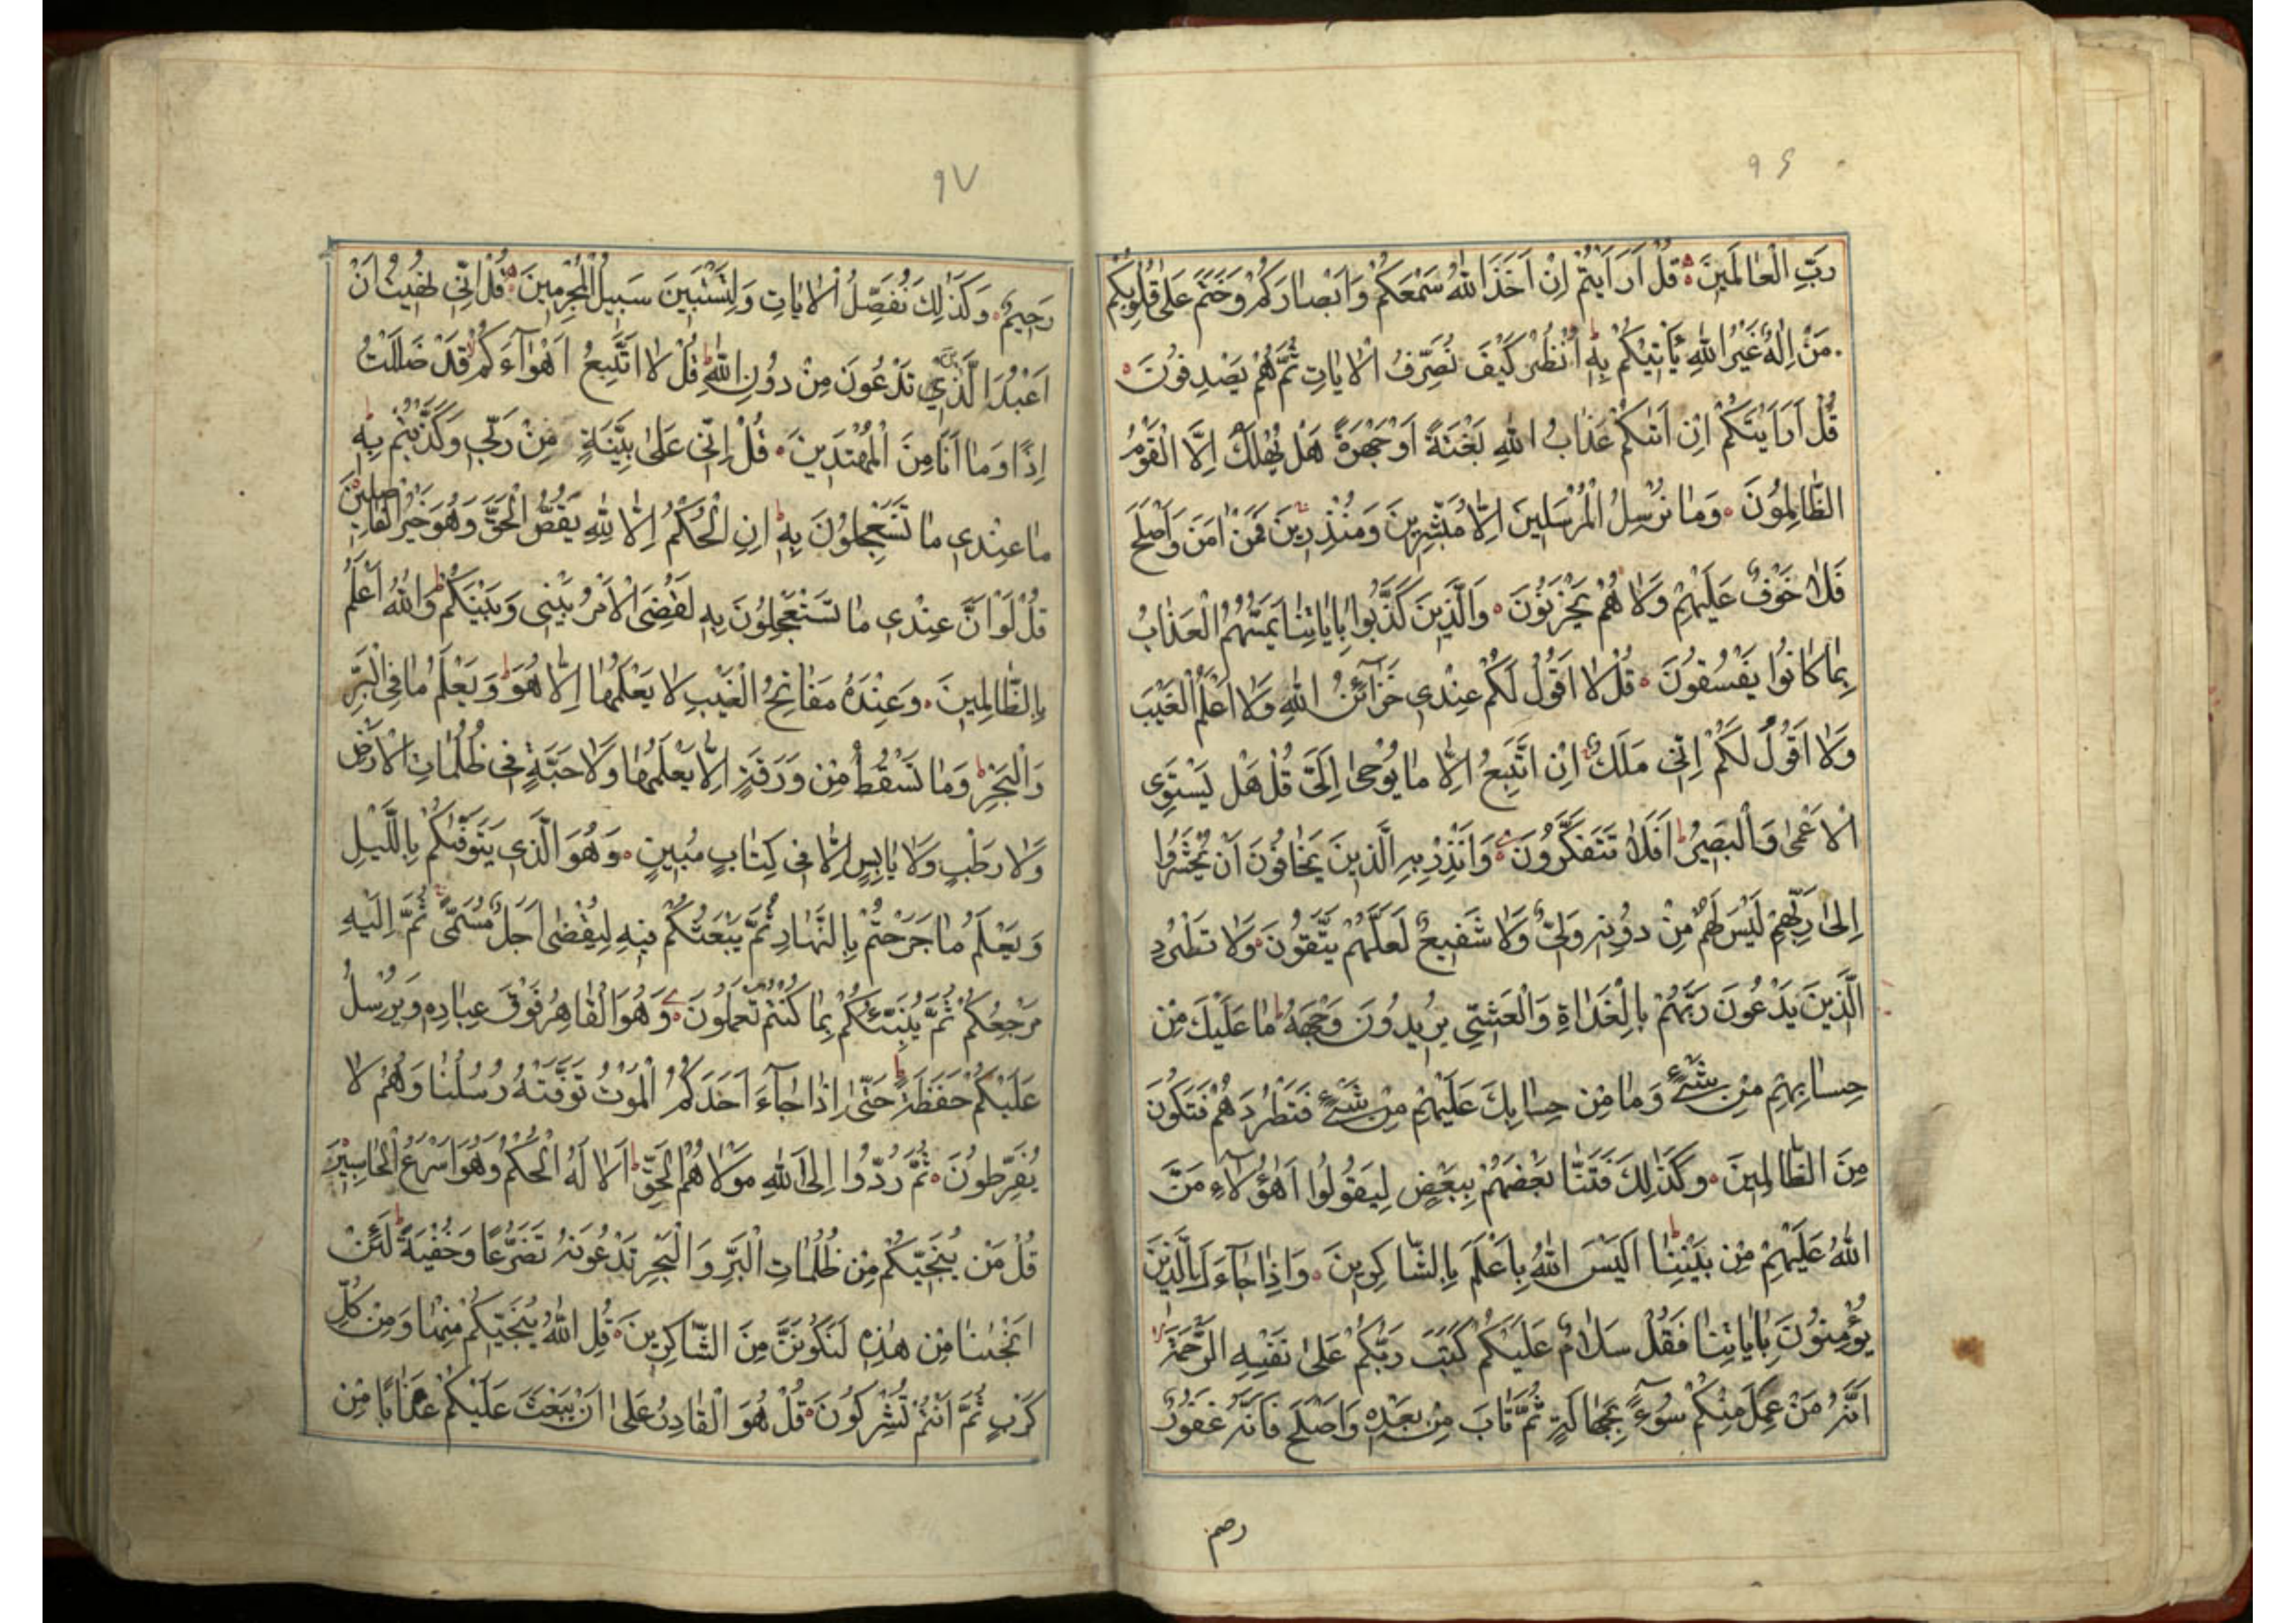 ٩٤
رَبِّ الْعٰالَمِينَ قُلْ اَرَاَيْتُمْ اِنْ اَخَذَ اللّٰهُ سَمْعَكُمْ وَاَبْصٰارَكُمْ وَخَتَمَ عَلٰى قُلُوبِكُمْ
مَنْ اِلٰهٌ غَيْرُ اللّٰهِ يَاْتِيكُمْ بِهِ اُنْظُرْ كَيْفَ نُصَرِّفُ الْاٰيٰاتِ ثُمَّ هُمْ يَصْدِفُونَ
قُلْ اَرَاَيْتَكُمْ اِنْ اَتٰىكُمْ عَذٰابُ اللّٰهِ بَغْتَةً اَوْ جَهْرَةً هَلْ يُهْلَكُ اِلَّا الْقَوْمُ
الظّٰالِمُونَ وَمٰا نُرْسِلُ الْمُرْسَلِينَ اِلّٰا مُبَشِّرِينَ وَمُنْذِرِينَ فَمَنْ اٰمَنَ وَاَصْلَحَ
فَلٰا خَوْفٌ عَلَيْهِمْ وَلٰا هُمْ يَحْزَنُونَ وَالَّذِينَ كَذَّبُوا بِاٰيٰاتِنٰا يَمَسُّهُمُ الْعَذٰابُ
بِمٰا كٰانُوا يَفْسُقُونَ قُلْ لٰا اَقُولُ لَكُمْ عِنْدِي خَزٰآئِنُ اللّٰهِ وَلٰا اَعْلَمُ الْغَيْبَ
وَلٰا اَقُولُ لَكُمْ اِنِّي مَلَكٌ اِنْ اَتَّبِعُ اِلّٰا مٰا يُوحٰى اِلَيَّ قُلْ هَلْ يَسْتَوِي
الْاَعْمٰى وَالْبَصِيرُ اَفَلٰا تَتَفَكَّرُونَ وَاَنْذِرْ بِهِ الَّذِينَ يَخٰافُونَ اَنْ يُحْشَرُوا
اِلٰى رَبِّهِمْ لَيْسَ لَهُمْ مِنْ دُونِهِ وَلِيٌّ وَلٰا شَفِيعٌ لَعَلَّهُمْ يَتَّقُونَ وَلٰا تَطْرُدِ
الَّذِينَ يَدْعُونَ رَبَّهُمْ بِالْغَدٰاةِ وَالْعَشِيِّ يُرِيدُونَ وَجْهَهُ مٰا عَلَيْكَ مِنْ
حِسٰابِهِمْ مِنْ شَيْءٍ وَمٰا مِنْ حِسٰابِكَ عَلَيْهِمْ مِنْ شَيْءٍ فَتَطْرُدَهُمْ فَتَكُونَ
مِنَ الظّٰالِمِينَ وَكَذٰلِكَ فَتَنّٰا بَعْضَهُمْ بِبَعْضٍ لِيَقُولُوا اَهٰؤُلٰآءِ مَنَّ
اللّٰهُ عَلَيْهِمْ مِنْ بَيْنِنٰا اَلَيْسَ اللّٰهُ بِاَعْلَمَ بِالشّٰاكِرِينَ وَاِذٰا جٰآءَكَ الَّذِينَ
يُؤْمِنُونَ بِاٰيٰاتِنٰا فَقُلْ سَلٰامٌ عَلَيْكُمْ كَتَبَ رَبُّكُمْ عَلٰى نَفْسِهِ الرَّحْمَةَ
اَنَّهُ مَنْ عَمِلَ مِنْكُمْ سُوٓءًا بِجَهٰالَةٍ ثُمَّ تٰابَ مِنْ بَعْدِهِ وَاَصْلَحَ فَاَنَّهُ غَفُورٌ
٩٧
رَحِيمٌ وَكَذٰلِكَ نُفَصِّلُ الْاٰيٰاتِ وَلِتَسْتَبِينَ سَبِيلُ الْمُجْرِمِينَ قُلْ اِنِّي نُهِيتُ اَنْ
اَعْبُدَ الَّذِينَ تَدْعُونَ مِنْ دُونِ اللّٰهِ قُلْ لٰا اَتَّبِعُ اَهْوٰآءَكُمْ قَدْ ضَلَلْتُ
اِذًا وَمٰا اَنَا مِنَ الْمُهْتَدِينَ قُلْ اِنِّي عَلٰى بَيِّنَةٍ مِنْ رَبِّي وَكَذَّبْتُمْ بِهِ
مٰا عِنْدِي مٰا تَسْتَعْجِلُونَ بِهِ اِنِ الْحُكْمُ اِلّٰا لِلّٰهِ يَقُصُّ الْحَقَّ وَهُوَ خَيْرُ الْفٰاصِلِينَ
قُلْ لَوْ اَنَّ عِنْدِي مٰا تَسْتَعْجِلُونَ بِهِ لَقُضِيَ الْاَمْرُ بَيْنِي وَبَيْنَكُمْ وَاللّٰهُ اَعْلَمُ
بِالظّٰالِمِينَ وَعِنْدَهُ مَفٰاتِحُ الْغَيْبِ لٰا يَعْلَمُهٰا اِلّٰا هُوَ وَيَعْلَمُ مٰا فِي الْبَرِّ
وَالْبَحْرِ وَمٰا تَسْقُطُ مِنْ وَرَقَةٍ اِلّٰا يَعْلَمُهٰا وَلٰا حَبَّةٍ فِي ظُلُمٰاتِ الْاَرْضِ
وَلٰا رَطْبٍ وَلٰا يٰابِسٍ اِلّٰا فِي كِتٰابٍ مُبِينٍ وَهُوَ الَّذِي يَتَوَفّٰىكُمْ بِاللَّيْلِ
وَيَعْلَمُ مٰا جَرَحْتُمْ بِالنَّهٰارِ ثُمَّ يَبْعَثُكُمْ فِيهِ لِيُقْضٰى اَجَلٌ مُسَمًّى ثُمَّ اِلَيْهِ
مَرْجِعُكُمْ ثُمَّ يُنَبِّئُكُمْ بِمٰا كُنْتُمْ تَعْمَلُونَ وَهُوَ الْقٰاهِرُ فَوْقَ عِبٰادِهِ وَيُرْسِلُ
عَلَيْكُمْ حَفَظَةً حَتّٰى اِذٰا جٰآءَ اَحَدَكُمُ الْمَوْتُ تَوَفَّتْهُ رُسُلُنٰا وَهُمْ لٰا
يُفَرِّطُونَ ثُمَّ رُدُّوا اِلَى اللّٰهِ مَوْلٰاهُمُ الْحَقِّ اَلٰا لَهُ الْحُكْمُ وَهُوَ اَسْرَعُ الْحٰاسِبِينَ
قُلْ مَنْ يُنَجِّيكُمْ مِنْ ظُلُمٰاتِ الْبَرِّ وَالْبَحْرِ تَدْعُونَهُ تَضَرُّعًا وَخُفْيَةً لَئِنْ
اَنْجٰىنٰا مِنْ هٰذِهِ لَنَكُونَنَّ مِنَ الشّٰاكِرِينَ قُلِ اللّٰهُ يُنَجِّيكُمْ مِنْهٰا وَمِنْ كُلِّ
كَرْبٍ ثُمَّ اَنْتُمْ تُشْرِكُونَ قُلْ هُوَ الْقٰادِرُ عَلٰى اَنْ يَبْعَثَ عَلَيْكُمْ عَذٰابًا مِنْ